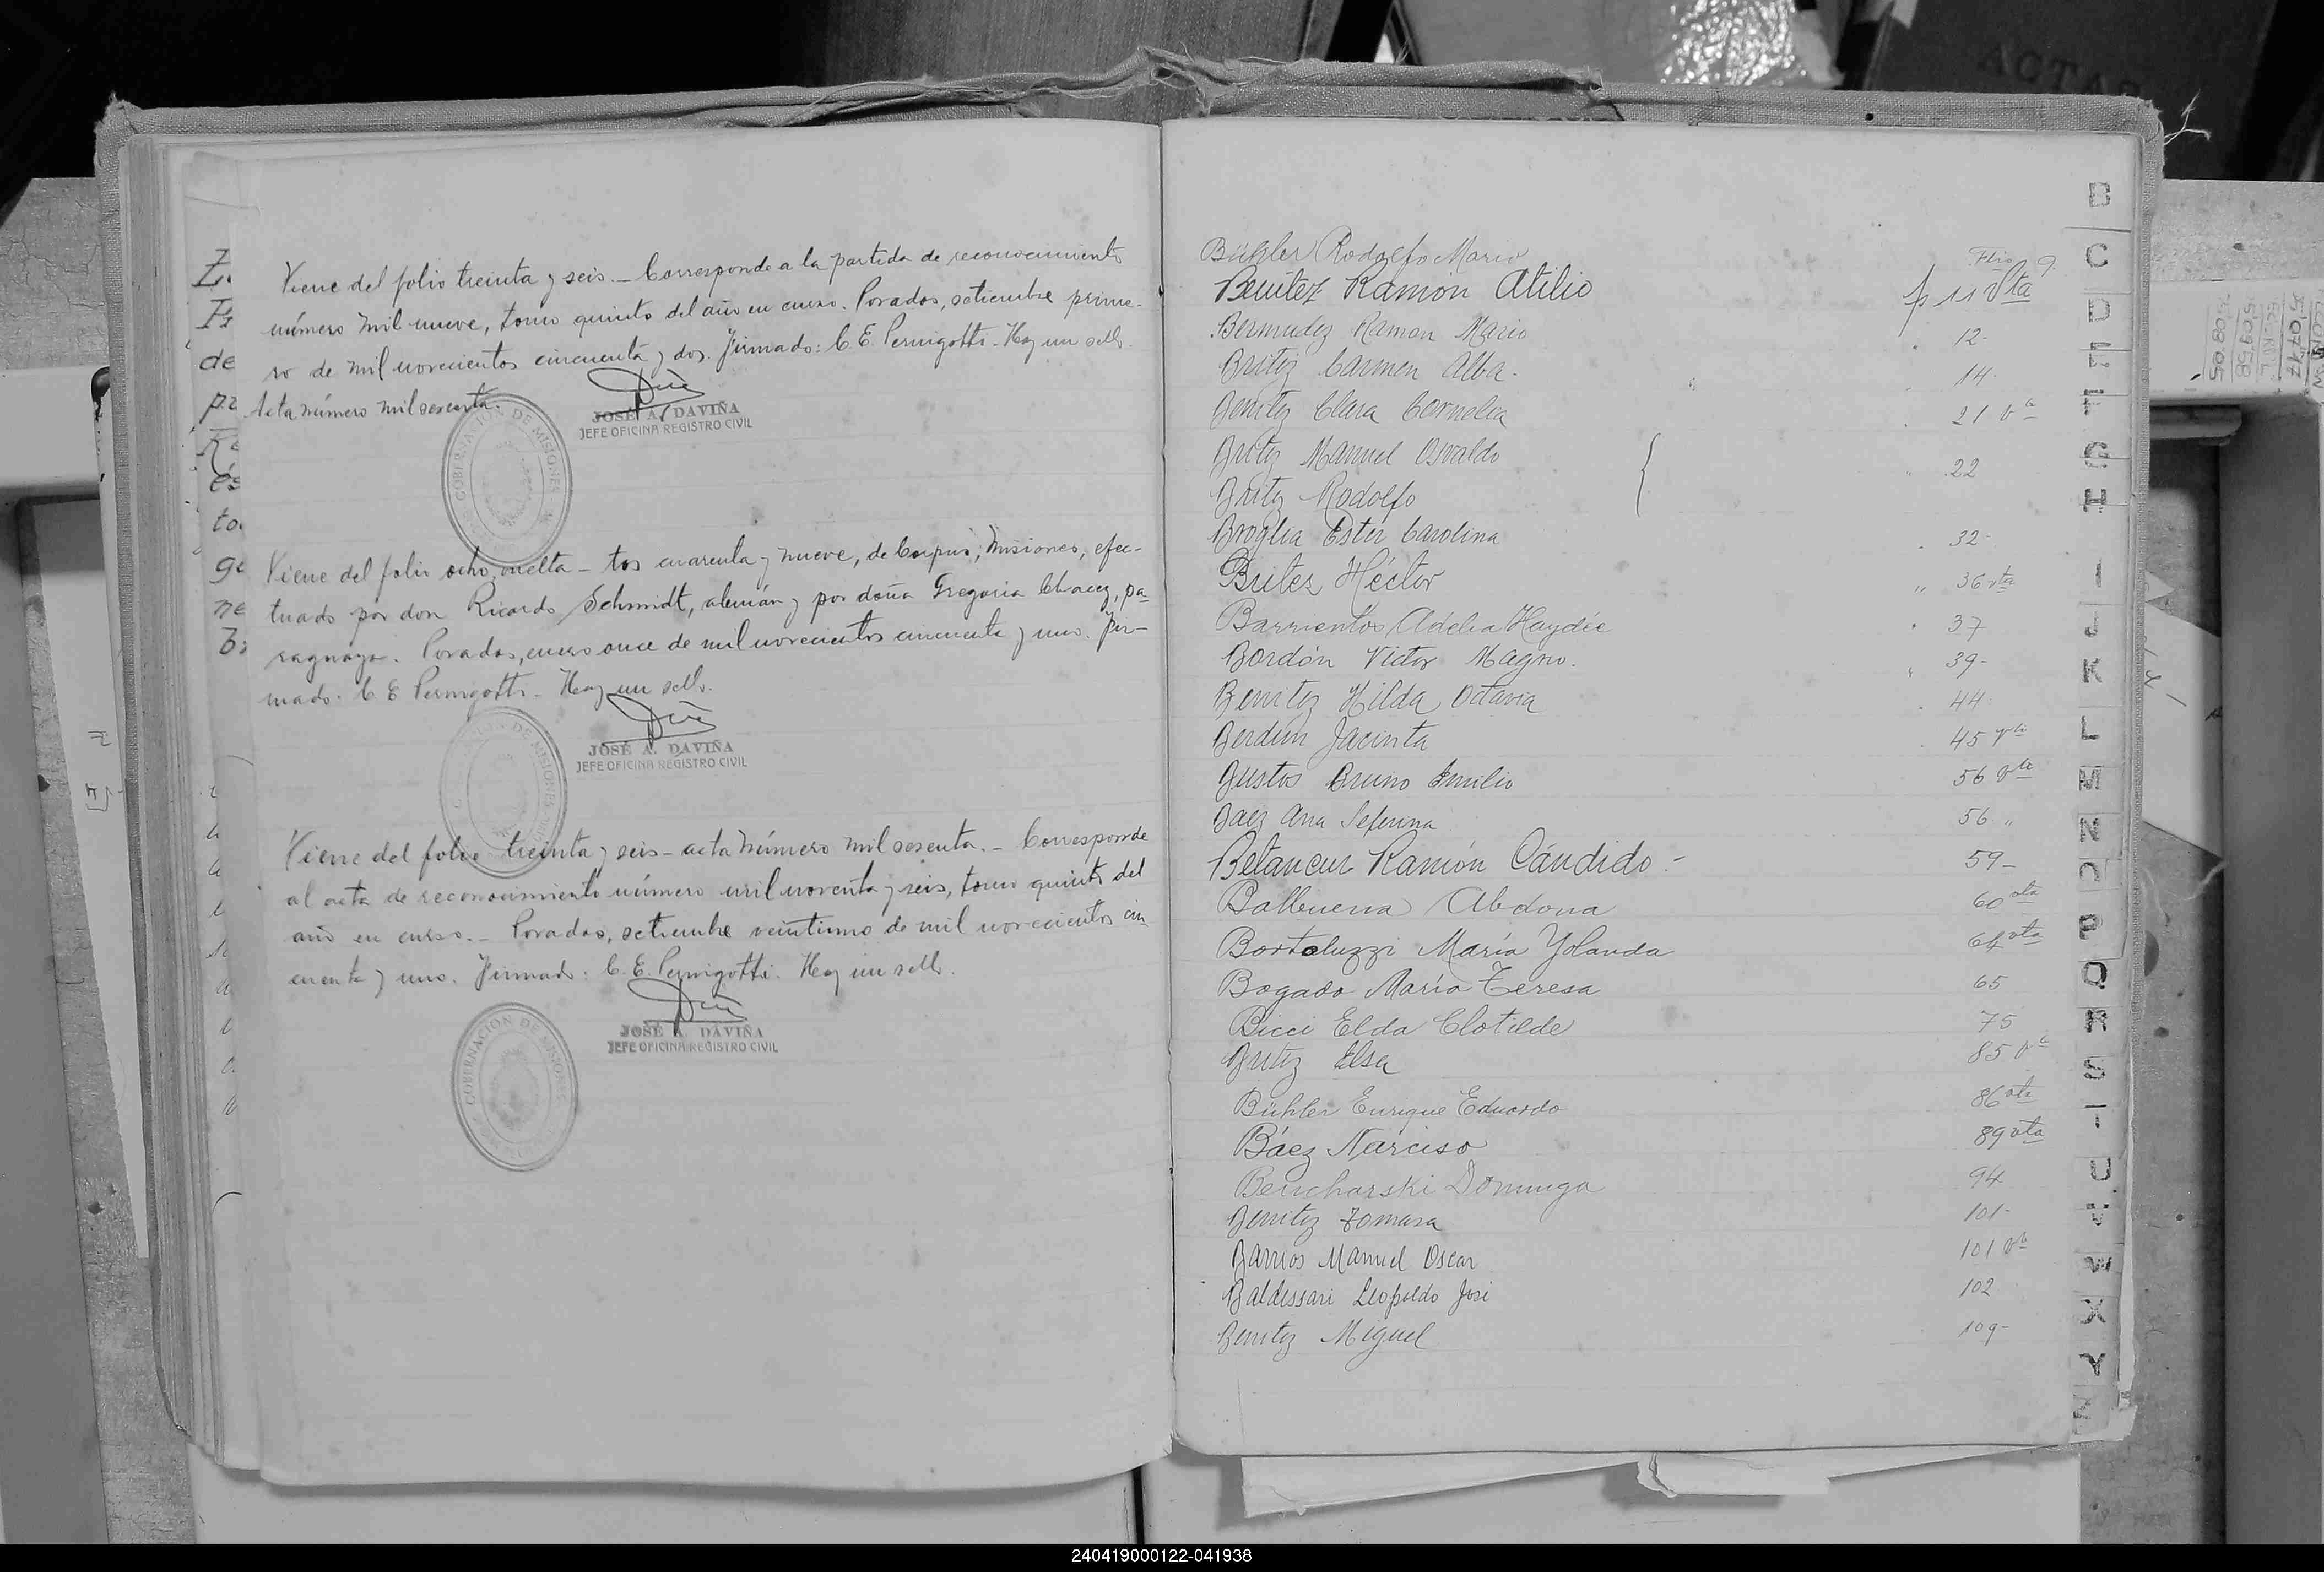 Viene del folio treinta y seis. — Corresponde a la partida de reconocimiento
número mil nueve, tomo quinto del año en curso. Posadas, setiembre prime-
ro de mil novecientos cincuenta y dos. Firmado: C. E. Pernigotti - Hay un sello.
Acta número mil sesenta.
JOSÉ A. DAVIÑA
JEFE OFICINA REGISTRO CIVIL
GOBERNACION DE MISIONES
Viene del folio ocho, vuelta - tos cuarenta y nueve, de Corpus, Misiones, efec-
tuado por don Ricardo Schmidt, alemán y por doña Gregoria Chavez, pa-
raguaya. Posadas, enero once de mil novecientos cincuenta y uno. Fir-
mado. C. E. Pernigotti - Hay un sello.
JOSÉ A. DAVIÑA
JEFE OFICINA REGISTRO CIVIL
DE MISIONES
Viene del folio treinta y seis - acta número mil sesenta. - Corresponde
al acta de reconocimiento número mil noventa y seis, tomo quinto del
año en curso. - Posadas, setiembre veintiuno de mil novecientos cin
cuenta y uno. Firmado: C. E. Pernigotti. Hay un sello.
JOSÉ A. DAVIÑA
JEFE OFICINA REGISTRO CIVIL
GOBERNACION DE MISIONES
Bühler Rodolfo Mario Flio 9
Benítez Ramón Atilio f 11 Vta
Bermudez Ramon Mario 12-
Britez Carmen Alba. 14-
Benitez Clara Cornelia 21 Va
Britez Manuel Osvaldo
22
Britez Rodolfo
Broglia Ester Carolina 32-
Britez Héctor " 36 vta
Barrientos Adelia Haydée 37
Bordón Victor Magno. 39-
Benitez Hilda Octavia 44-
Berdun Jacinta 45 Vta
Bustos Bruno Emilio 56 Vta
Baez Ana Seferina 56 "
Betancur Ramón Cándido - 59-
Balbuena Abdona 60 vta
Bortoluzzi María Yolanda 64 vta
Bogado María Teresa 65
Bicci Elda Clotilde 75
Britez Elsa 85 Va
Bühler Enrique Eduardo 86 vta
Báez Narciso 89 vta
Bencharski Dominga 94
Benitez Tomasa 101-
Barrios Manuel Oscar 101 Vta
Baldessari Leopoldo José 102
Benitez Miguel 109-
B
C
D
E
F
G
H
I
J
K
L
M
N
O
P
Q
R
S
T
U
V
W
X
Y
Z
240419000122-041938